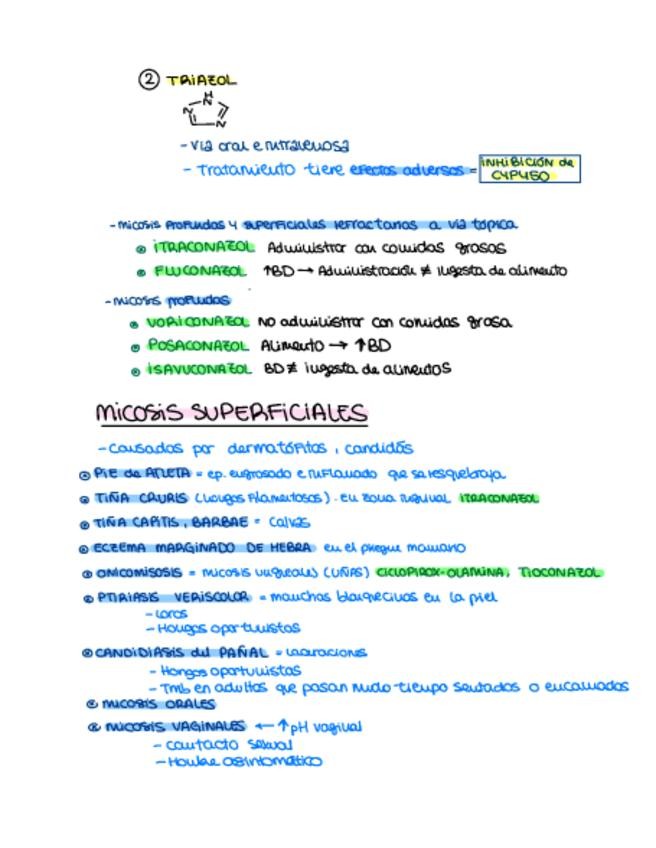 ② TRIAZOL
H
N
N
N
- Vía oral e intravenosa
- Tratamiento tiene efectos adversos = INHIBICIÓN de CYP450
- MICOSIS PROFUNDAS y SUPERFICIALES refractarias a vía tópica
ITRACONAZOL Administrar con comidas grasas
FLUCONAZOL ↑BD → Administración ≠ ingesta de alimento
- MICOSIS PROFUNDAS
VORICONAZOL No administrar con comidas grasa
POSACONAZOL Alimento → ↑BD
ISAVUCONAZOL BD ≠ ingesta de alimentos
MICOSIS SUPERFICIALES
- Causadas por dermatófitos, candidas
PIE de ATLETA = ep. engrosado e inflamado que se resquebraja
TIÑA CRURIS (hongos filamentosos). En zona inguinal ITRACONAZOL
TIÑA CAPITIS, BARBAE = Calvas
ECZEMA MARGINADO DE HEBRA en el pliegue mamario
ONICOMISOSIS = micosis ungueales (UÑAS) CICLOPIROX-OLAMINA, TIOCONAZOL
PTIRIASIS VERISCOLOR = manchas blanquecinas en la piel
- Loros
- Hongos oportunistas
CANDIDIASIS del PAÑAL = laceraciones
- Hongos oportunistas
- Tmb en adultos que pasan mucho tiempo sentados o encamados
MICOSIS ORALES
MICOSIS VAGINALES ← ↑pH vaginal
- Contacto sexual
- Hombre asintomático